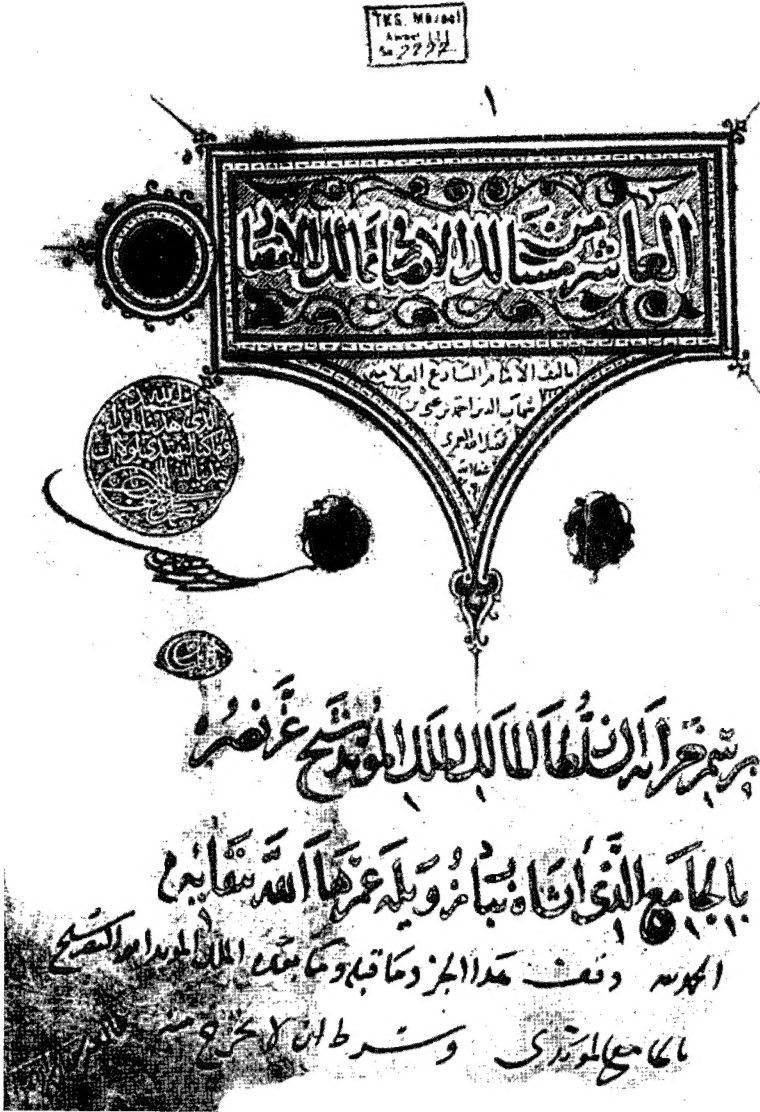 TKS. Müzesi
Ahmet III
No 2797
١
العاشر من مسالك الأبصار في ممالك الأمصار
تاليف الامام البارع العلامة
شهاب الدين احمد بن يحيى بن
فضل الله العمري
برسم خزانة السلطان المالك الملك المؤيد شيخ عز نصره
بالجامع الذي أنشاه بباب زويله عمرها الله ببقايه
الحمد لله وقف هذا الجزء وما قبله وما بعده الملك المؤيد ابو النصر شيخ
بالجامع المؤيدي وشرط ان لا يخرج منه